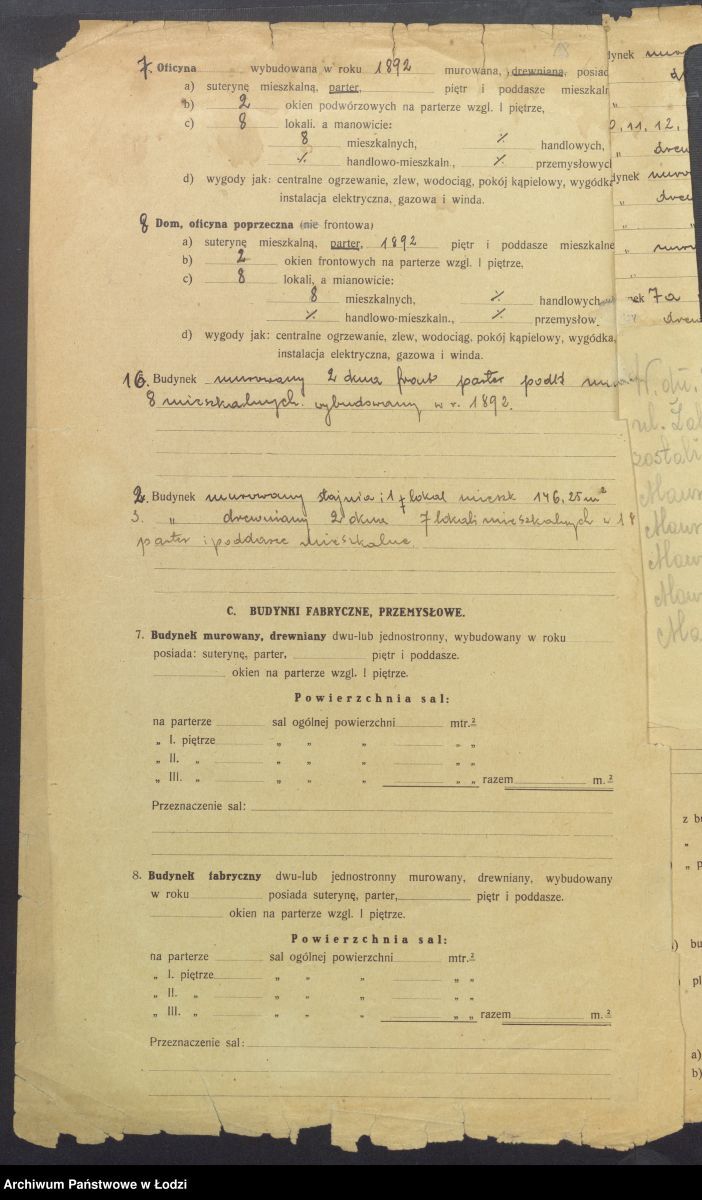 7. Oficyna wybudowana w roku 1892 murowana, drewniana, posiad
a) suterynę mieszkalną, parter, piętr i poddasze mieszkaln
b) 2 okien podwórzowych na parterze wzgl. I piętrze,
c) 8 lokali. a manowicie:
8 mieszkalnych, % handlowych,
% handlowo-mieszkaln., % przemysłowych
d) wygody jak: centralne ogrzewanie, zlew, wodociąg, pokój kąpielowy, wygódka
instalacja elektryczna, gazowa i winda.
8 Dom, oficyna poprzeczna (nie frontowa)
a) suterynę mieszkalną, parter, 1892 piętr i poddasze mieszkalne
b) 2 okien frontowych na parterze wzgl. I piętrze,
c) 8 lokali, a mianowicie:
8 mieszkalnych, % handlowych
% handlowo-mieszkaln., % przemysłow
d) wygody jak: centralne ogrzewanie, zlew, wodociąg, pokój kąpielowy, wygódka,
instalacja elektryczna, gazowa i winda.
16. Budynek murowany 2 okna front parter
8 mieszkalnych. wybudowany w r. 1892.
2. Budynek murowany stajnia i 1 lokal mieszk 146,25 m²
3. „ drewniany 2 okna 7 lokali mieszkalnych w 18
parter i poddasze mieszkalne.
C. BUDYNKI FABRYCZNE, PRZEMYSŁOWE.
7. Budynek murowany, drewniany dwu-lub jednostronny, wybudowany w roku
posiada: suterynę, parter, piętr i poddasze.
okien na parterze wzgl. I piętrze.
Powierzchnia sal:
na parterze sal ogólnej powierzchni mtr.²
„ I. piętrze „ „ „ „ „
„ II. „ „ „ „ „ „
„ III. „ „ „ „ „ „ razem m.²
Przeznaczenie sal:
8. Budynek fabryczny dwu-lub jednostronny murowany, drewniany, wybudowany
w roku posiada suterynę, parter, piętr i poddasze.
okien na parterze wzgl. I piętrze.
Powierzchnia sal:
na parterze sal ogólnej powierzchni mtr.²
„ I. piętrze „ „ „ „ „
„ II. „ „ „ „ „ „
„ III. „ „ „ „ „ „ razem m.²
Przeznaczenie sal:
Archiwum Państwowe w Łodzi